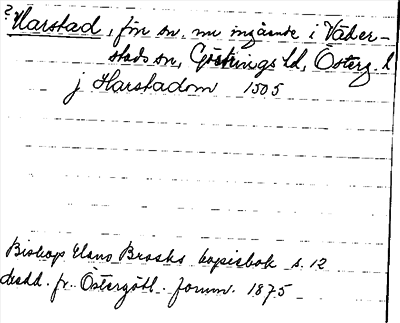 ? Harstad, förr sn. nu ingående i Väder-
stads sn, Göstrings hd, Österg. l
j Harstadom 1505
Biskop Hans Brasks kopiebok s. 12
 fr. Östergötl. fornm. 1875